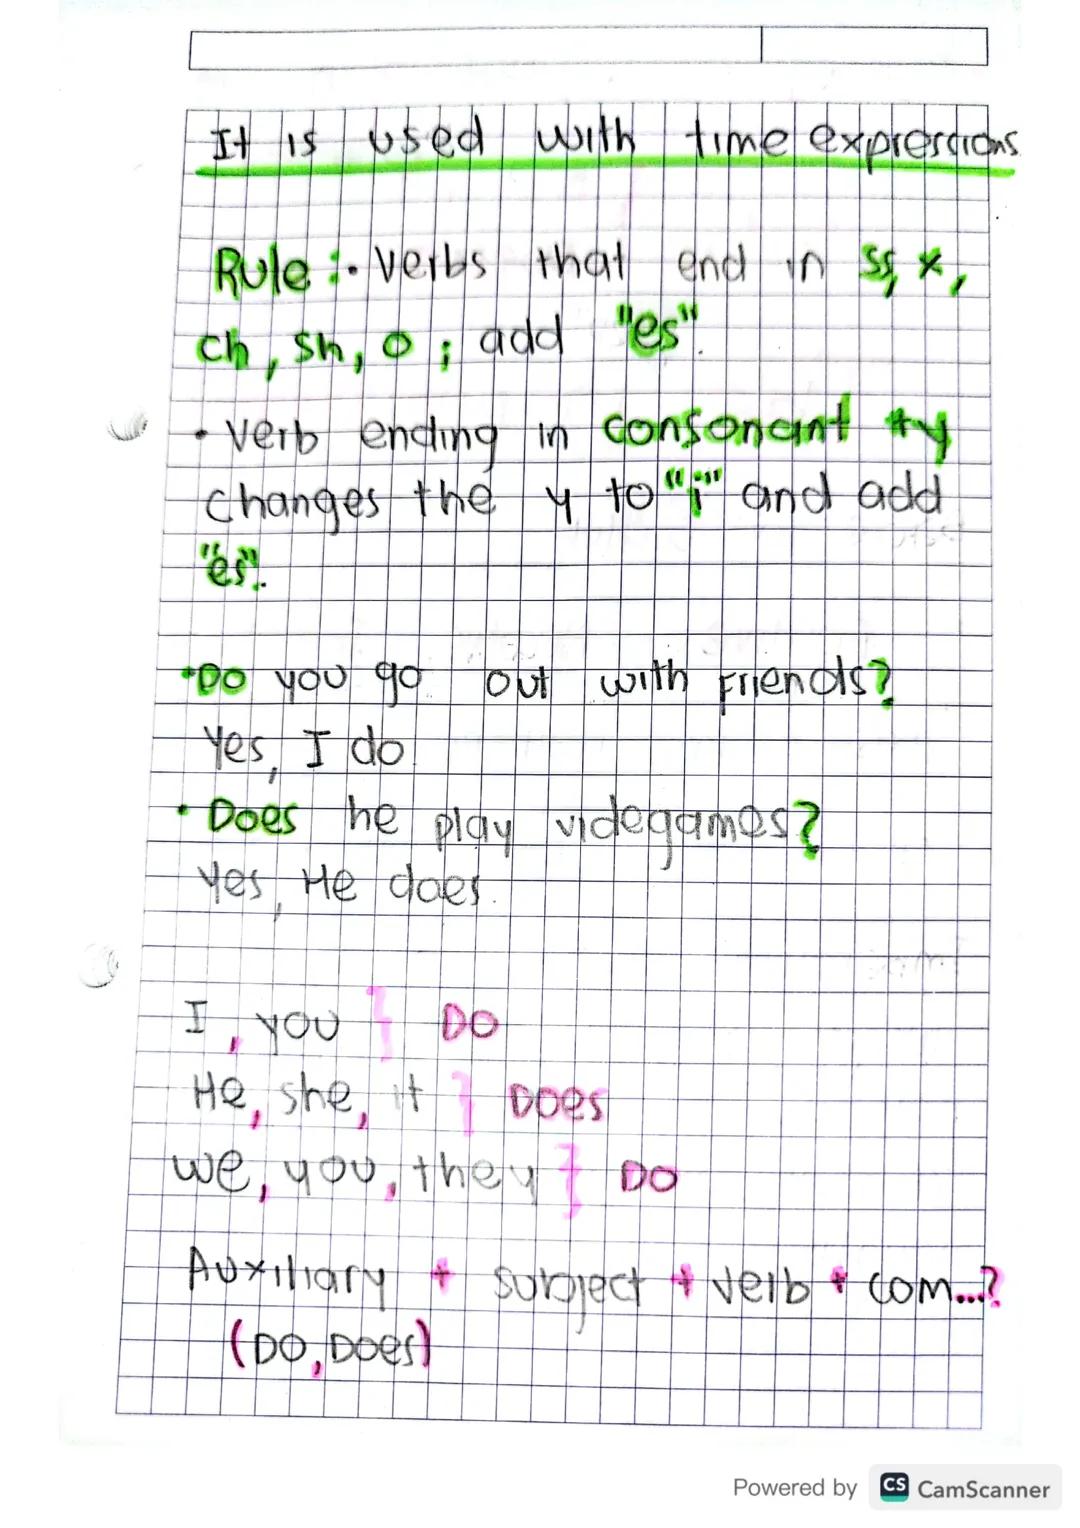 It is used with time expressions
Rule:· Verbs that end in ss, x,
ch, sh, o ; add "es".
· Verb ending in consonant +y
changes the y to "i" and add
"es".
·Do you go out with friends?
Yes, I do
· Does he play videgames?
Yes, He does.
I, you } DO
He, she, it } DOES
We, you, they } DO
Auxiliary + subject + verb + com...?
(DO, DOES)
Powered by CS CamScanner